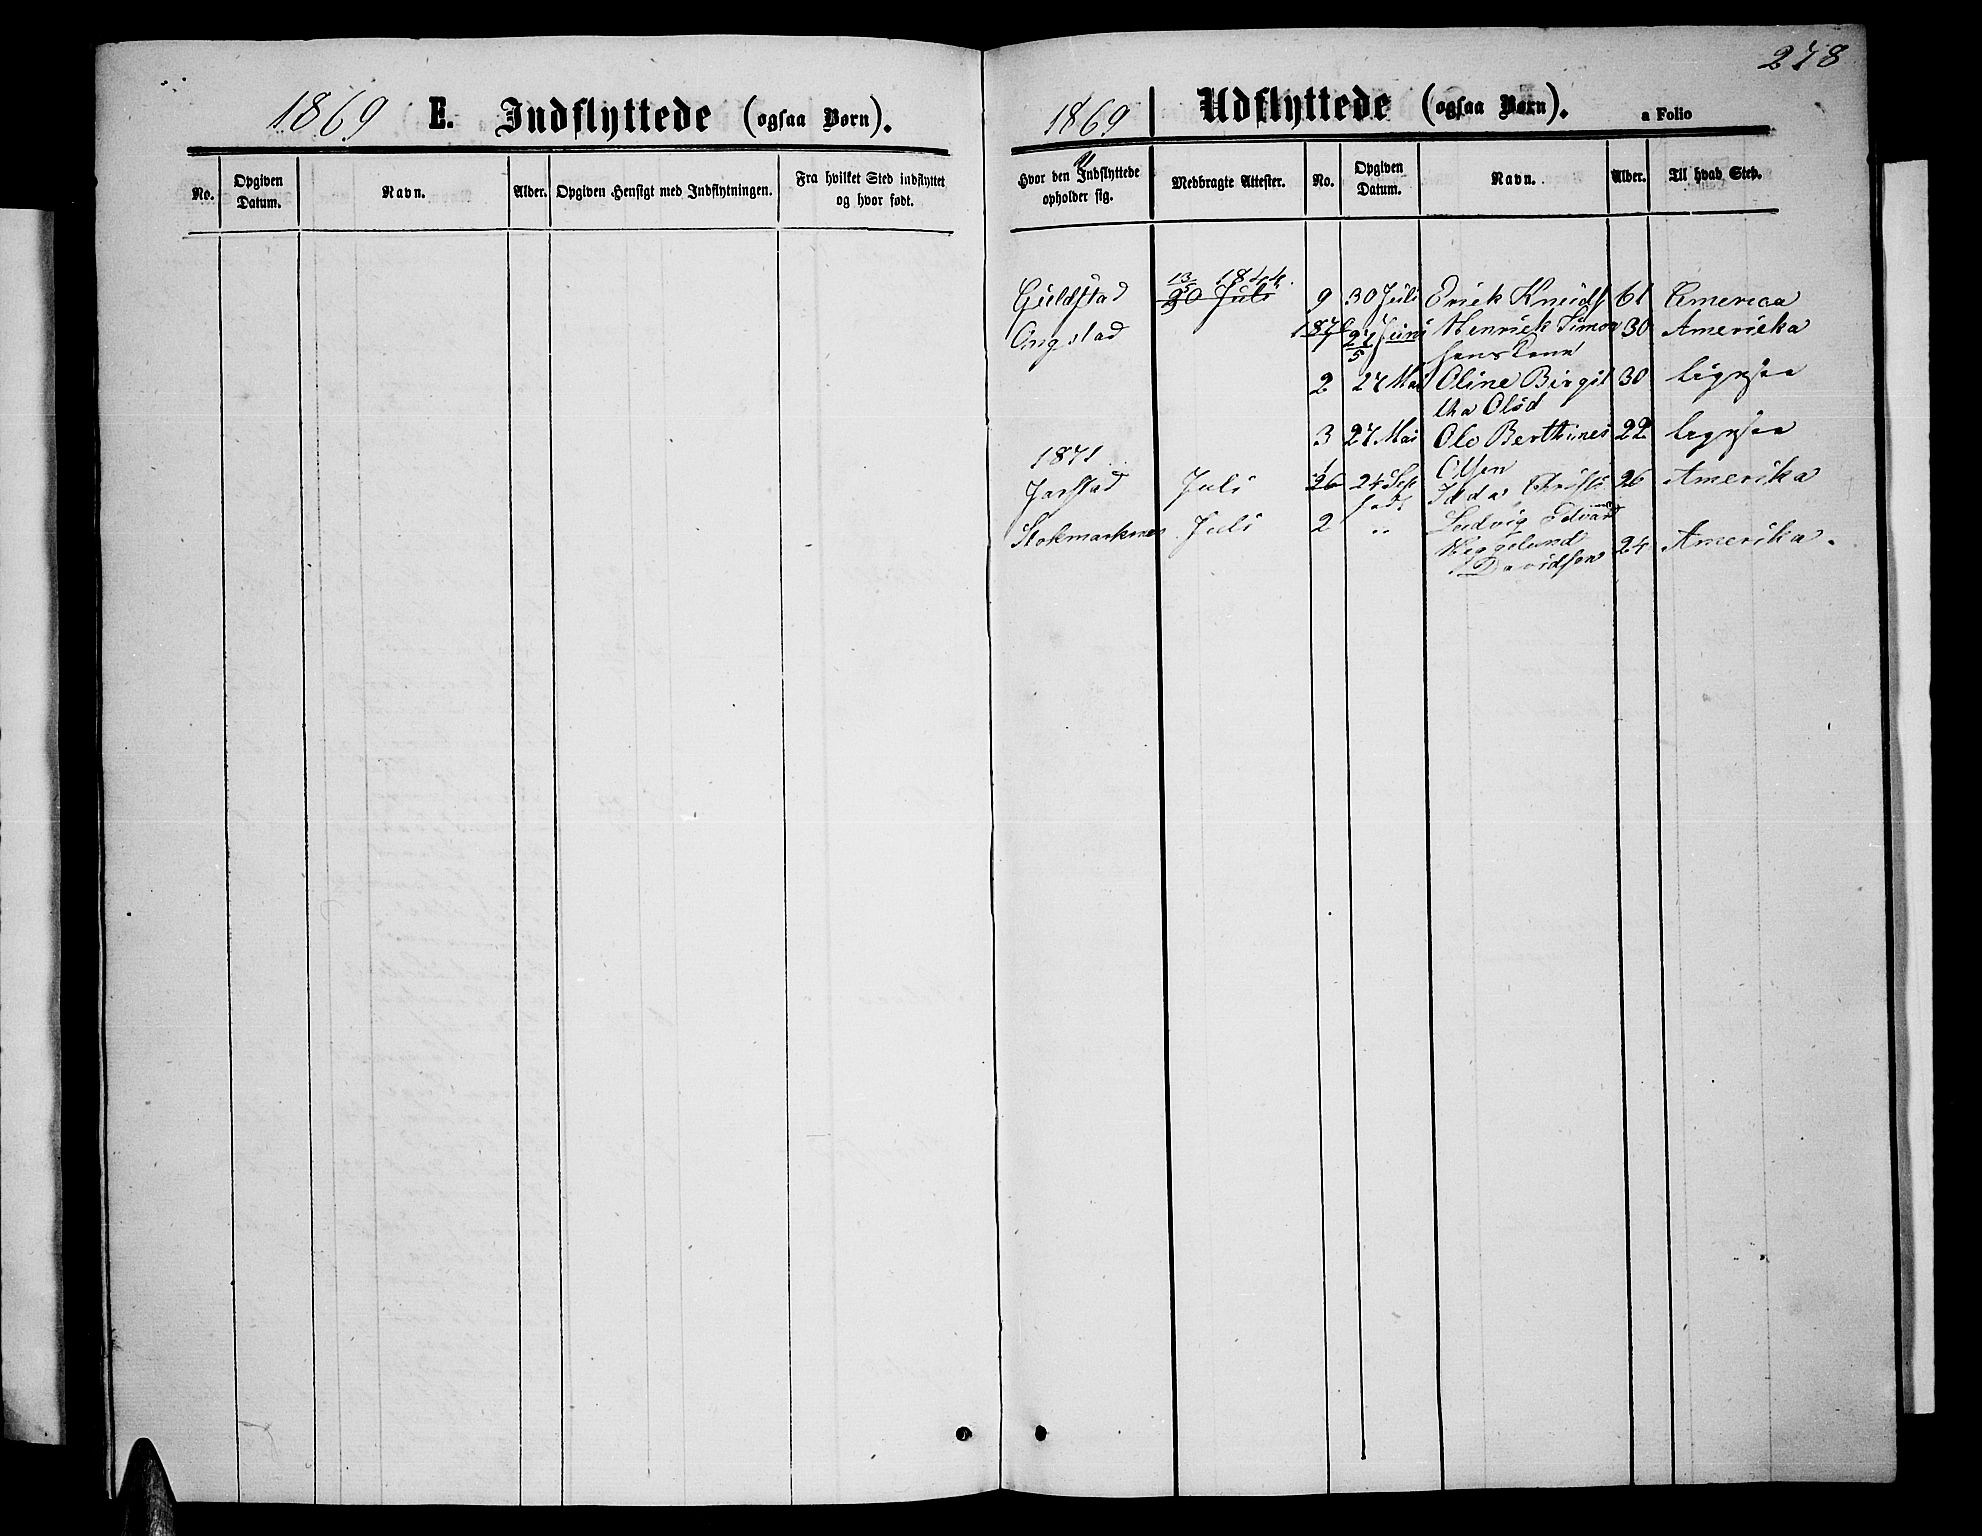 278
1869 E. Indflyttede (ogsaa Børn).
1869 Udflyttede (ogsaa Børn). a Folio
No. Opgiven Datum. Navn. Alder. Opgiven Hensigt med Indflytningen. Fra hvilket Sted indflyttet og hvor født.
Hvor den Indflyttede opholder sig. Medbragte Attester. No. Opgiven Datum. Navn. Alder. Til hvad Sted.
13/5 1844.
Guldstad 30 Juli 9 30 Juli Erick Knuds 61 America
Ongstad 1870 Juni Henrick Simon 30 Amerieka
1 27/5 sen
2 27 Mai Oline Birgit 30 ligesaa
tha Olsd
3 27 Mai Ole Berthines 22 ligesaa
1871 Olsen
Jarstad Juli 1 24 Sep Idda 26 Amerika
Stokmarknes Juli 2 " Ludvig Edvard
Heggelund 24 Amerika.
Davidsen